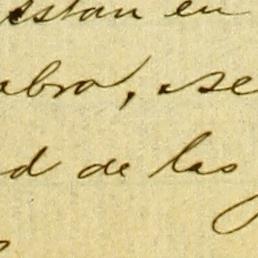 estan en
abra, se
d de las